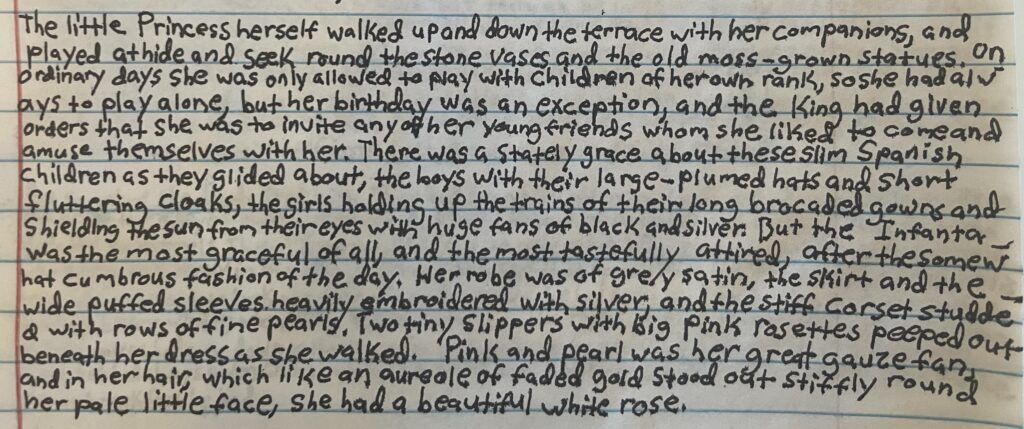 The little Princess herself walked up and down the terrace with her companions, and
played at hide and seek round the stone vases and the old moss-grown statues. On
ordinary days she was only allowed to play with children of her own rank, so she had alw
ays to play alone, but her birthday was an exception, and the King had given
orders that she was to invite any of her young friends whom she liked to come and
amuse themselves with her. There was a stately grace about these slim Spanish
children as they glided about, the boys with their large-plumed hats and short
fluttering cloaks, the girls holding up the trains of their long brocaded gowns and
shielding the sun from their eyes with huge fans of black and silver. But the Infanta
was the most graceful of all, and the most tastefully attired, after the somew
hat cumbrous fashion of the day. Her robe was of grey satin, the skirt and the
wide puffed sleeves heavily embroidered with silver, and the stiff corset studde
d with rows of fine pearls. Two tiny slippers with big pink rosettes peeped out
beneath her dress as she walked. Pink and pearl was her great gauze fan,
and in her hair, which like an aureole of faded gold stood out stiffly round
her pale little face, she had a beautiful white rose.